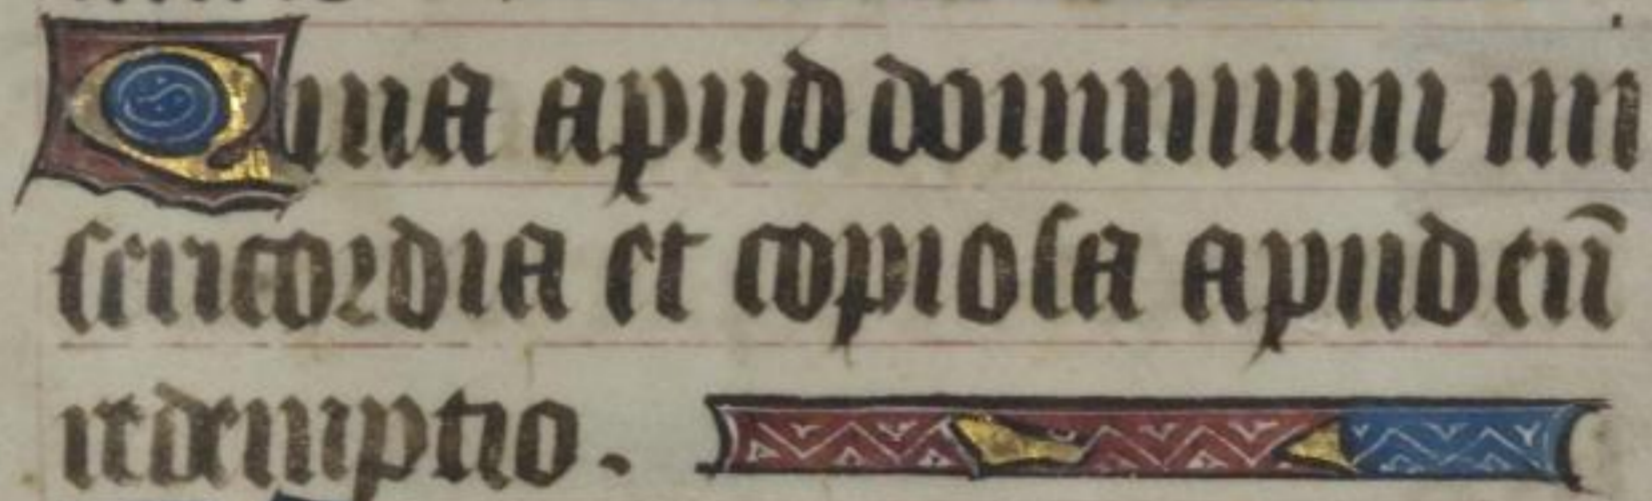 Quia apud dominum mi
sericordia et copiosa apud eū
redemptio.